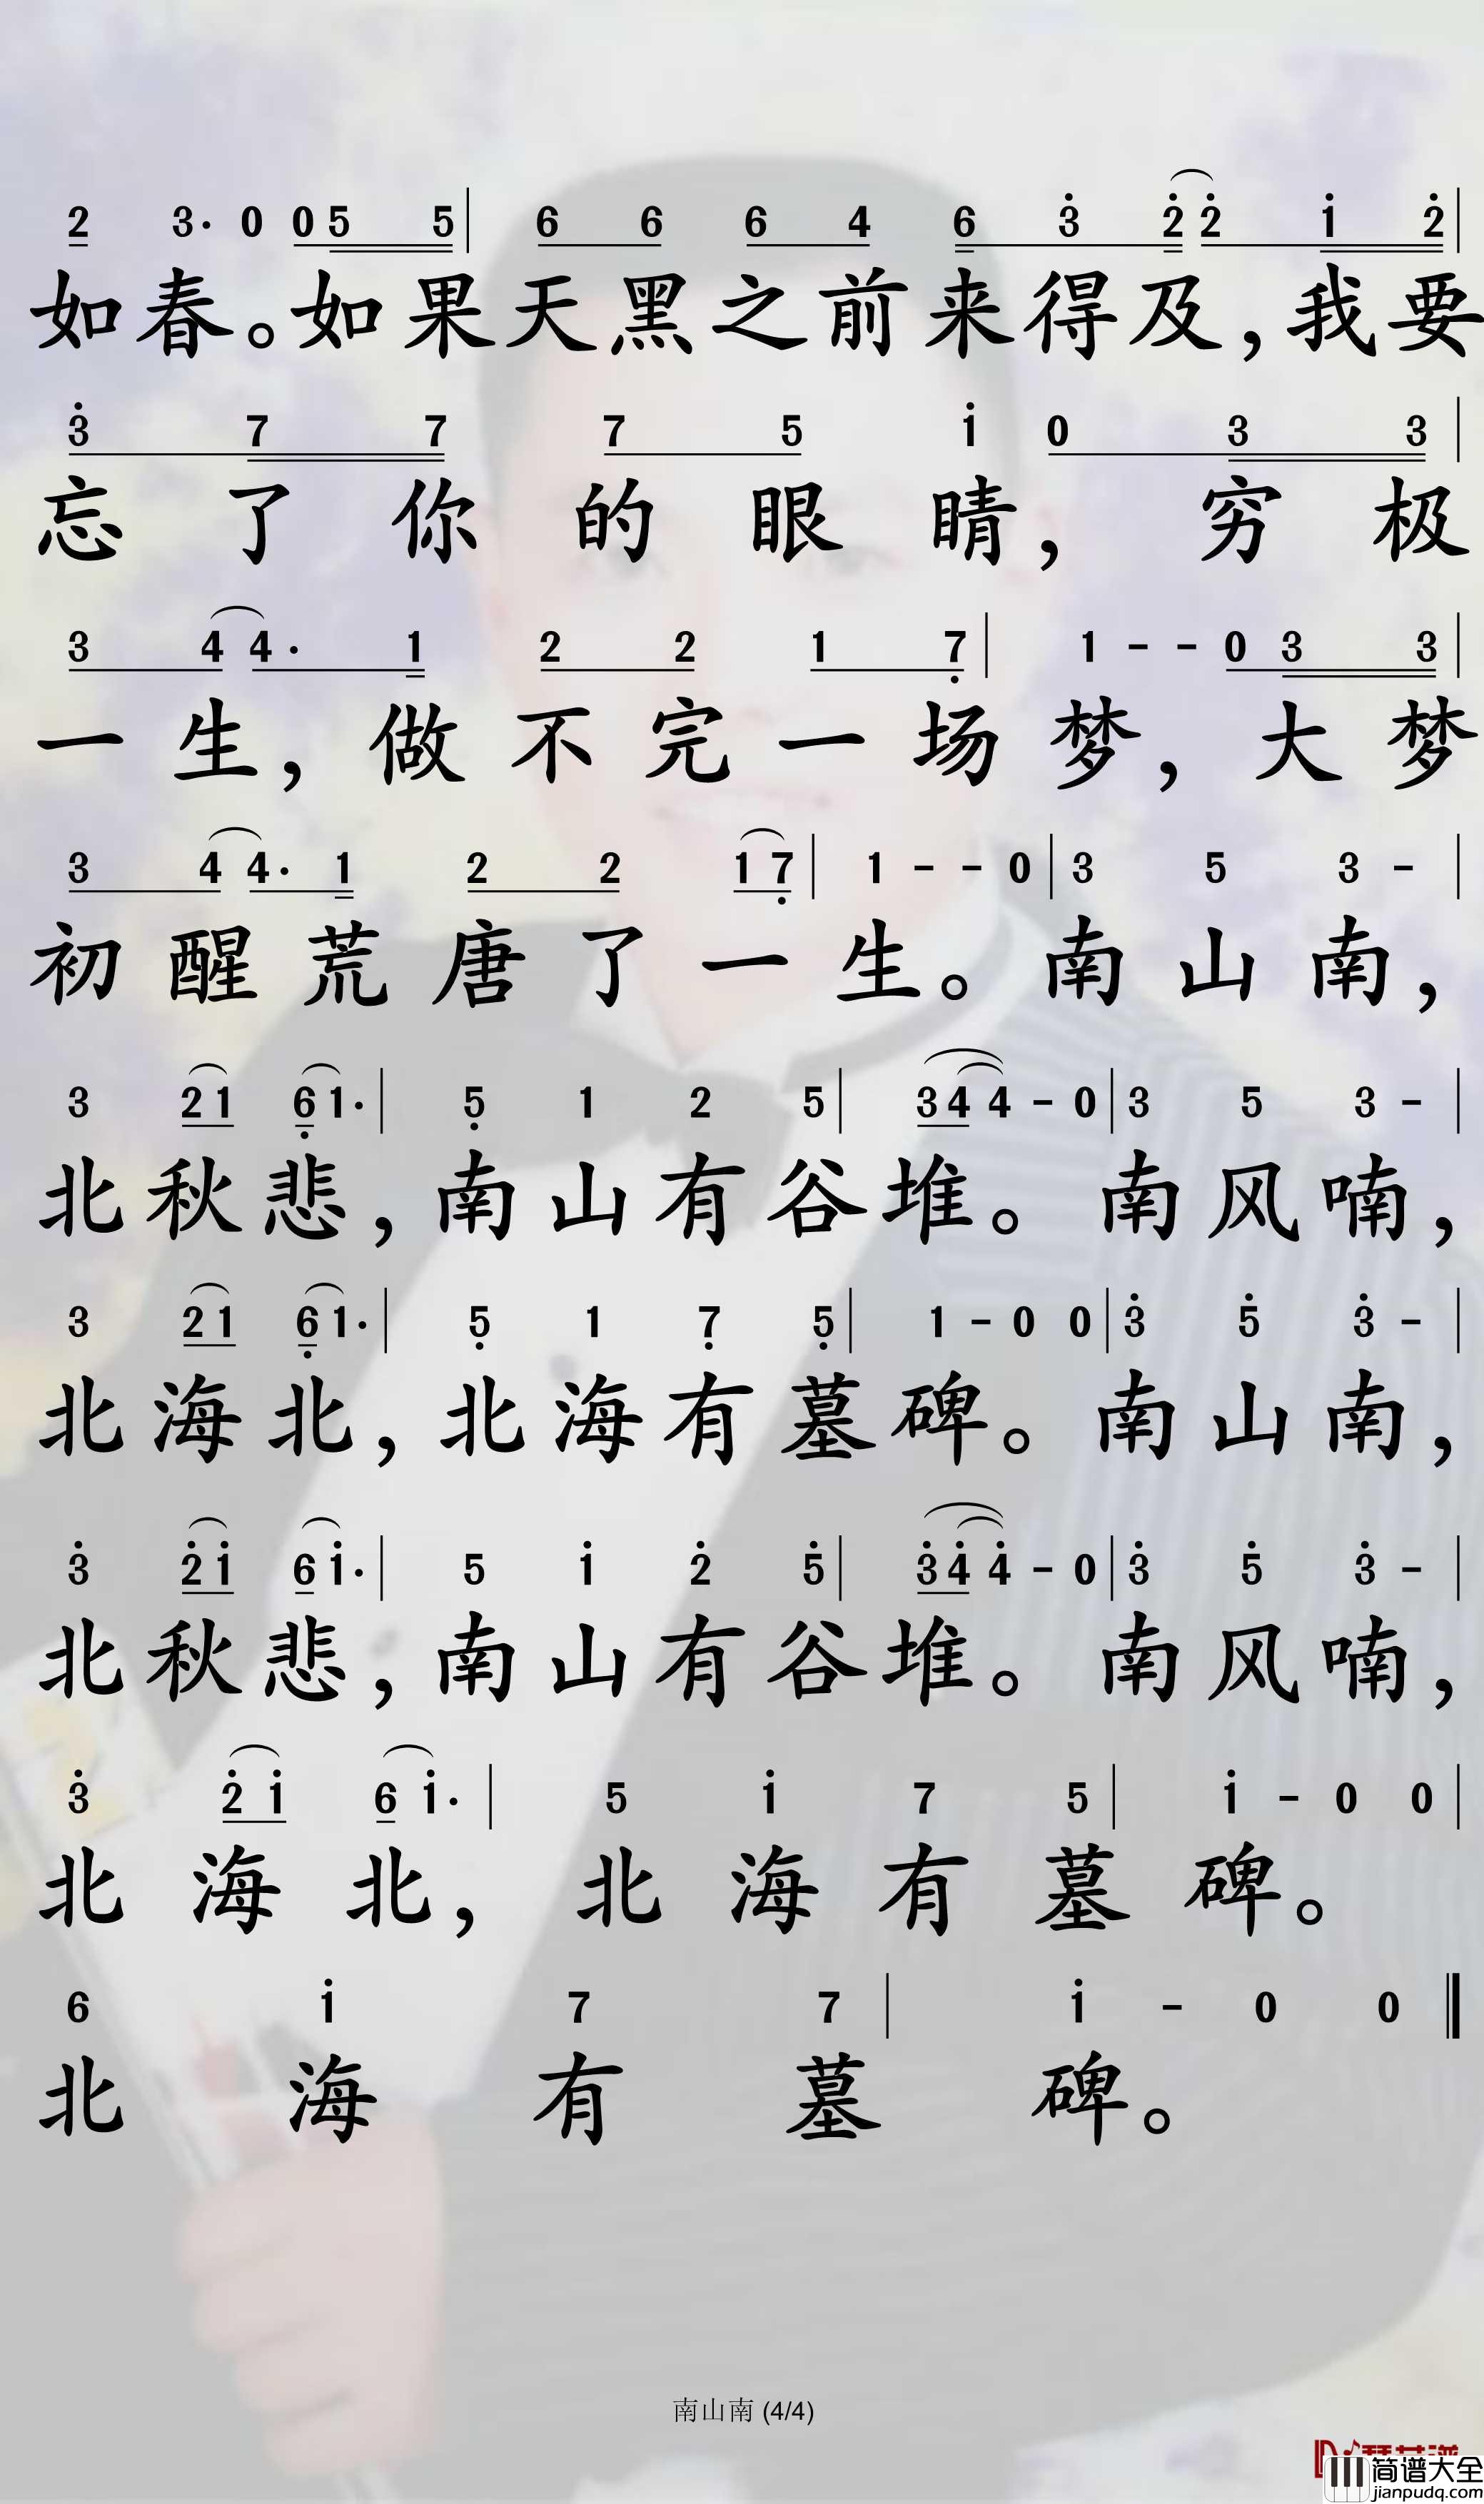 2 3· 0 0 5 5 | 6 6 6 4 6 3̇ 2̇ 2̇ 1̇ 2̇ |
如春。如果天黑之前来得及,我要
3̇ 7 7 7 5 1̇ 0 3 3 |
忘了你的眼睛,穷极
3 4 4· 1 2 2 1 7̣ | 1 - - 0 3 3 |
一生,做不完一场梦,大梦
3 4 4· 1 2 2 1 7̣ | 1 - - 0 | 3 5 3 - |
初醒荒唐了一生。南山南,
3 2 1 6̣ 1· | 5̣ 1 2 5 | 3 4 4 - 0 | 3 5 3 - |
北秋悲,南山有谷堆。南风喃,
3 2 1 6̣ 1· | 5̣ 1 7̣ 5̣ | 1 - 0 0 | 3̇ 5̇ 3̇ - |
北海北,北海有墓碑。南山南,
3̇ 2̇ 1̇ 6 1̇· | 5 1̇ 2̇ 5̇ | 3̇ 4̇ 4̇ - 0 | 3̇ 5̇ 3̇ - |
北秋悲,南山有谷堆。南风喃,
3̇ 2̇ 1̇ 6 1̇· | 5 1̇ 7 5 | 1̇ - 0 0 |
北海北,北海有墓碑。
6 1̇ 7 7 | 1̇ - 0 0 ‖
北海有墓碑。
南山南 (4/4)
简谱大全
jianpudq.com